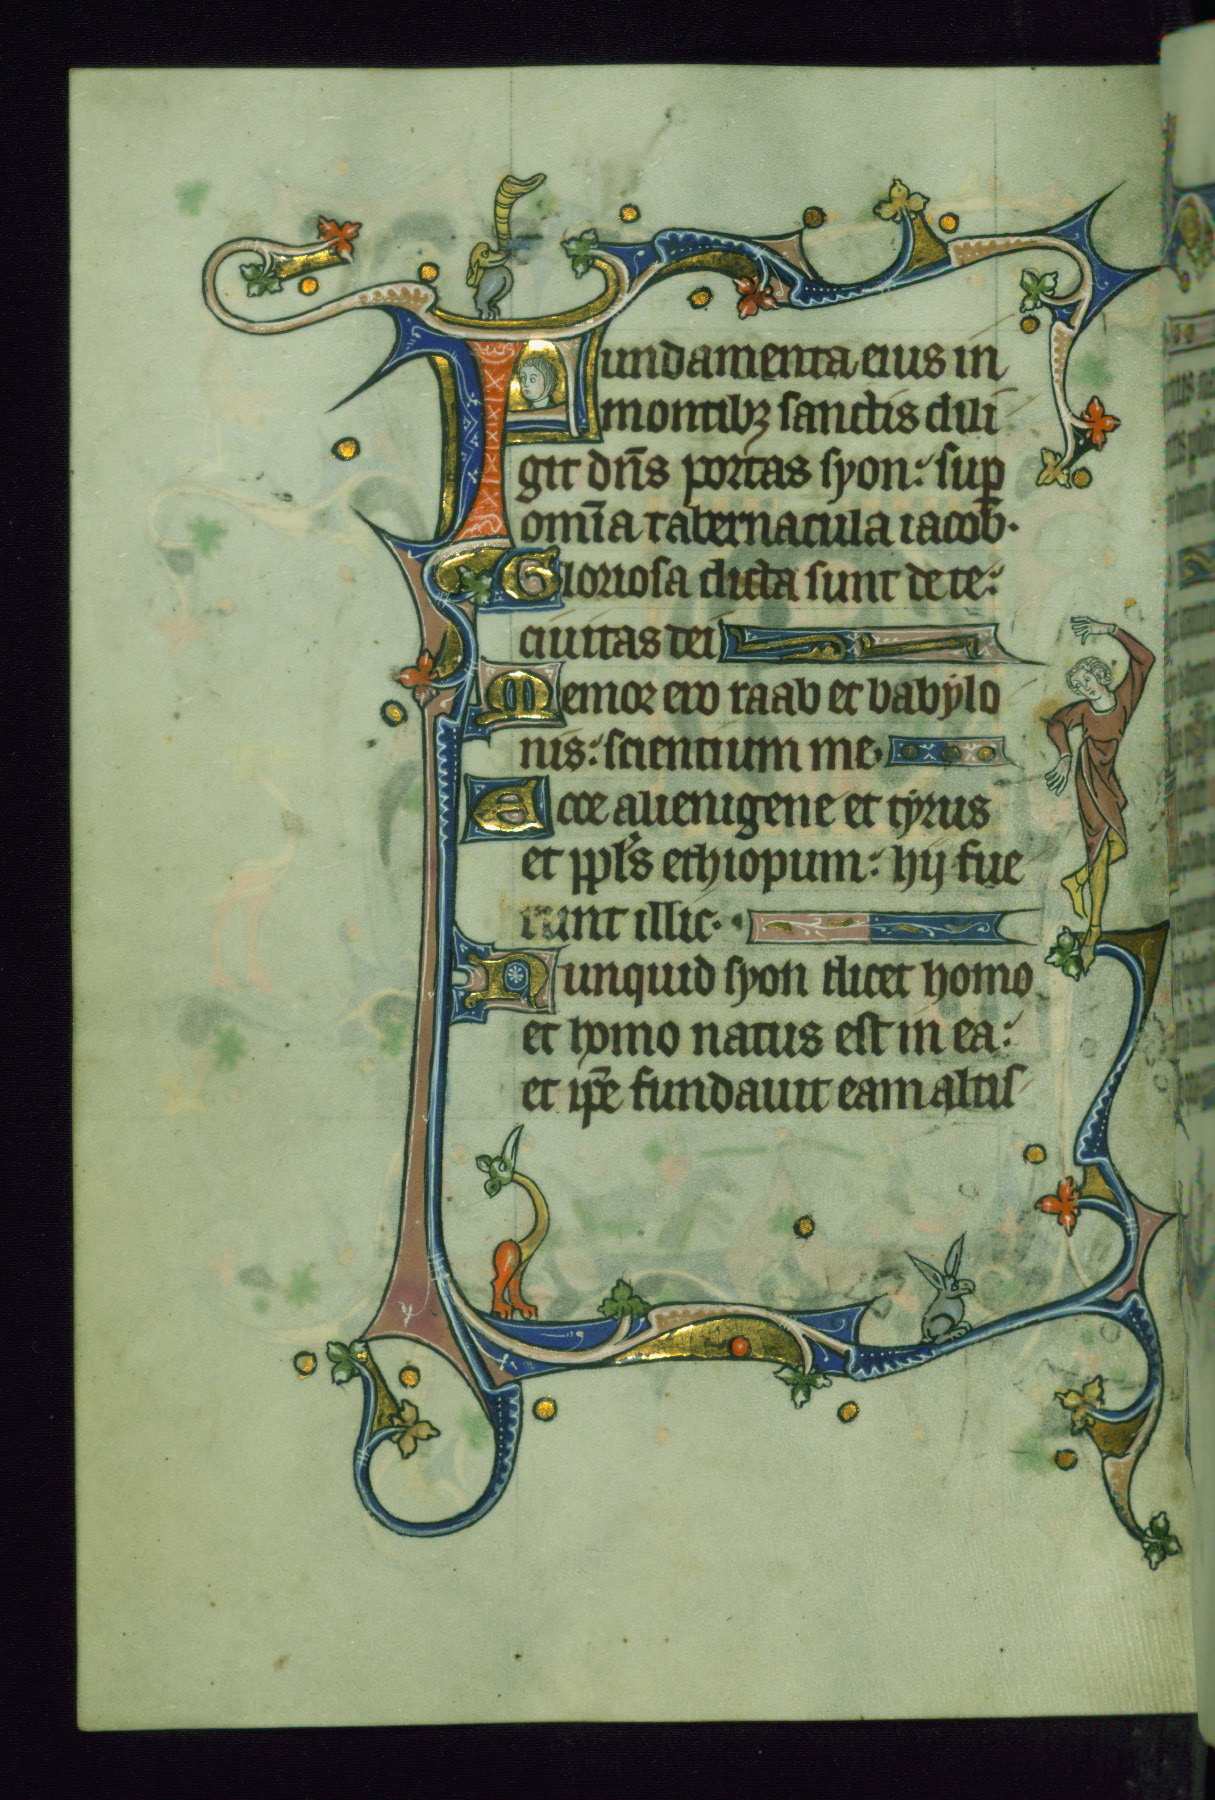 Fundamenta eius in
montibꝫ sanctis dili
git dn̄s portas syon: sup̄
om̄ia tabernacula iacob.
Gloriosa dicta sunt de te:
ciuitas dei
Memor ero raab et babylo
nis: scientium me
Ecce alienigene et tyrus
et ppl̄s ethiopum: hij fue
runt illic.
Nunquid syon dicet homo
et homo natus est in ea:
et ip̄e fundauit eam altis